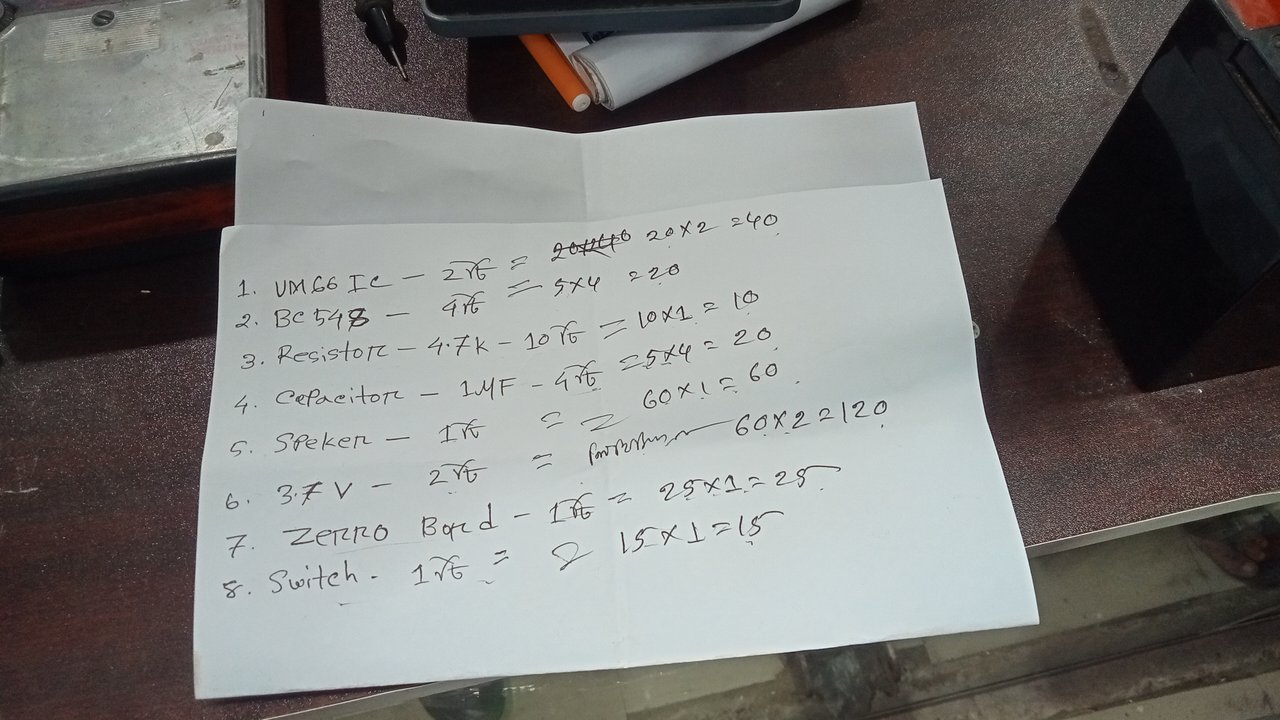 1. UM66 Ic - 2টি = 20×2 =40
2. Bc 548 - 4টি = 5×4 =20
3. Resistor - 4.7k - 10টি = 10×1 = 10
4. Capacitor - 1MF - 4টি = 5×4 = 20
5. Speker - 1টি = 60×1 = 60
6. 3.7 V - 2টি = 60×2 = 120
7. Zerro Bord - 1টি = 25×1 = 25
8. Switch - 1টি = 15×1 = 15